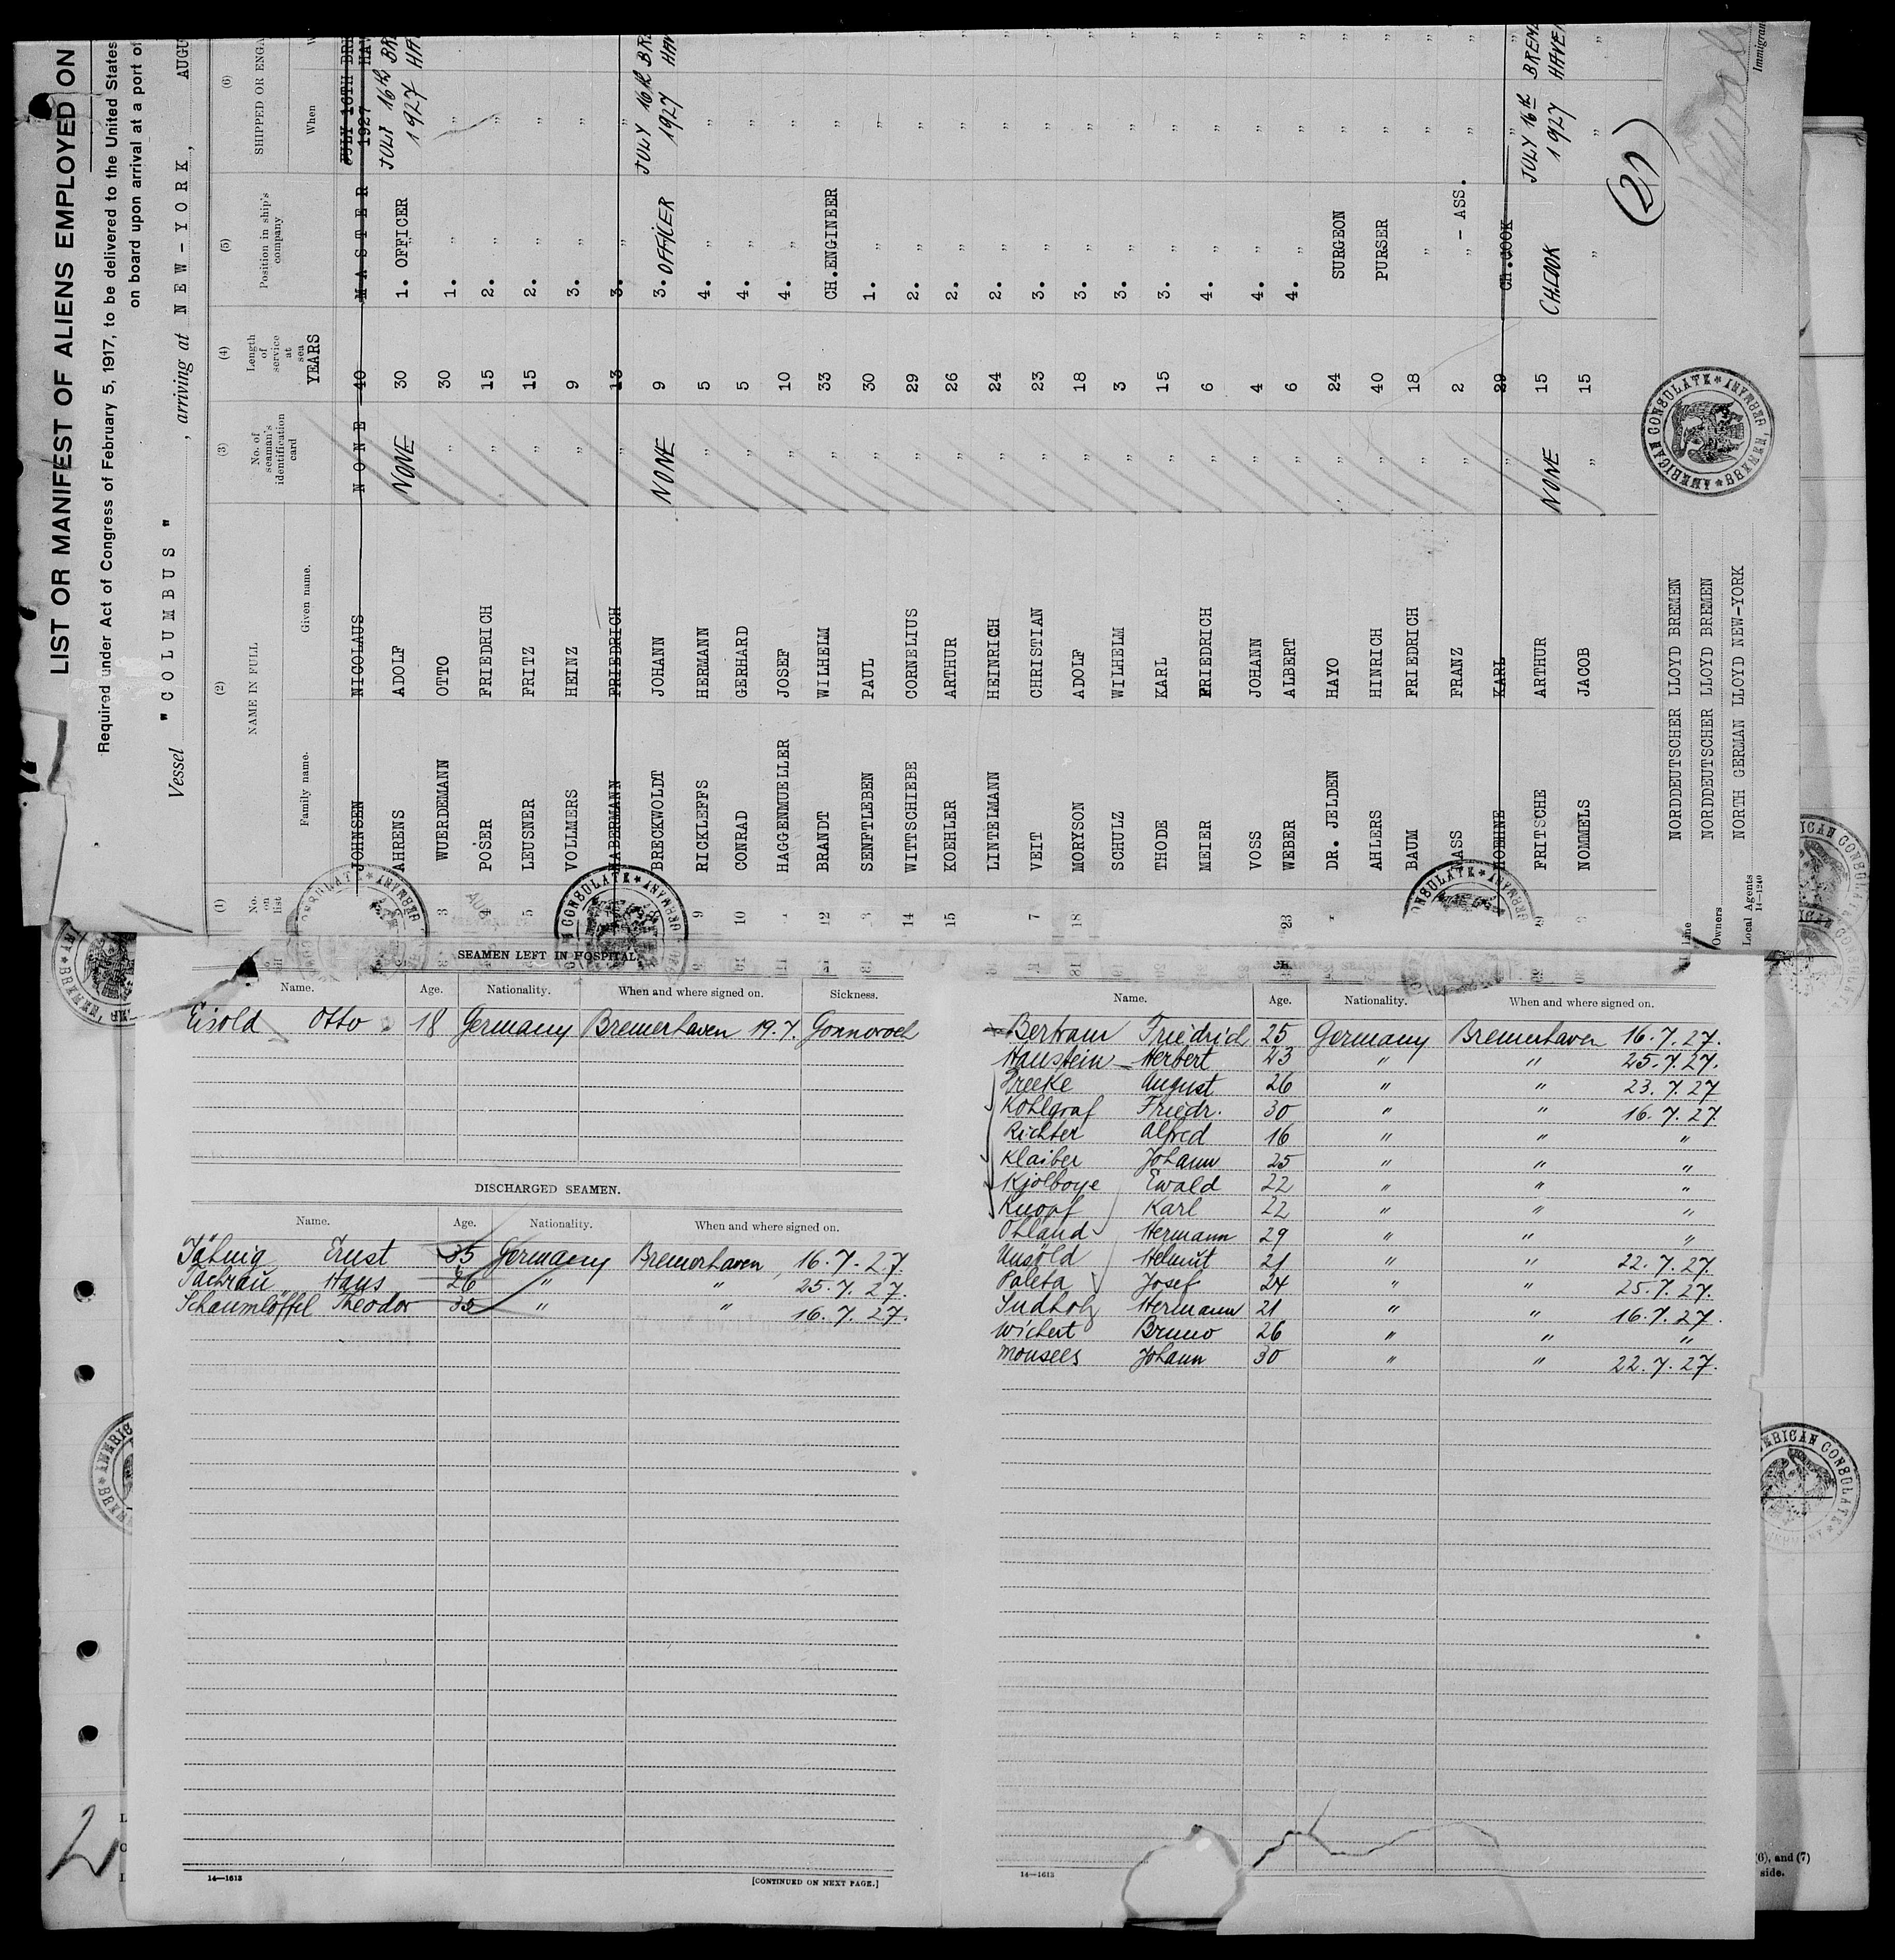 LIST OR MANIFEST OF ALIENS EMPLOYED ON
Required under Act of Congress of February 5, 1917, to be delivered to the United States
on board upon arrival at a port of
Vessel "COLUMBUS", arriving at NEW-YORK, AUGU
(1) (2) (3) (4) (5) (6)
No. on list NAME IN FULL No. of seaman's identification card Length of service at sea Position in ship's company SHIPPED OR ENGA
Family name. Given name. YEARS When W
JOHNSEN NICOLAUS NONE 40 MASTER JULY 16TH 1927 BRE HAV
AHRENS ADOLF NONE 30 1. OFFICER JULY 16th 1927 BRE HA
3 WUERDEMANN OTTO " 30 1. " "
4 POSER FRIEDRICH " 15 2. " "
5 LEUSNER FRITZ " 15 2. " "
VOLLMERS HEINZ " 9 3. " "
HABERMANN FRIEDRICH " 13 3. " "
BRECKWOLDT JOHANN NONE 9 3. OFFICER JULY 16th 1927 BRE HAV
9 RICKLEFFS HERMANN " 5 4. " " "
10 CONRAD GERHARD " 5 4. " " "
HAGGENMUELLER JOSEF " 10 4. " " "
12 BRANDT WILHELM " 33 CH.ENGINEER " "
SENFTLEBEN PAUL " 30 1. " " "
14 WITTSCHIEBE CORNELIUS " 29 2. " " "
15 KOEHLER ARTHUR " 26 2. " " "
LINTELMANN HEINRICH " 24 2. " " "
7 VEIT CHRISTIAN " 23 3. " " "
18 MORYSON ADOLF " 18 3. " " "
SCHULZ WILHELM " 3 3. " " "
THODE KARL " 15 3. " " "
MEIER FRIEDRICH " 6 4. " " "
VOSS JOHANN " 4 4. " " "
23 WEBER ALBERT " 6 4. " " "
DR. JELDEN HAYO " 24 SURGEON " "
AHLERS HINRICH " 40 PURSER " "
BAUM FRIEDRICH " 18 " " "
MASS FRANZ " 2 " - ASS. " "
HOEHNE KARL " 29 CH.COOK "
FRITSCHE ARTHUR NONE 15 CH.COOK JULY 16th 1927 BREME HAVEN
NOMMELS JACOB " 15 " " "
Line NORDDEUTSCHER LLOYD BREMEN
Owners NORDDEUTSCHER LLOYD BREMEN
Local Agents NORTH GERMAN LLOYD NEW-YORK
14—1240
(21)
Immigran
AMERICAN CONSULATE * BREMEN, GERMANY *
SEAMEN LEFT IN HOSPITAL.
Name. Age. Nationality. When and where signed on. Sickness.
Eisold Otto 18 Germany Bremerhaven 19.7.
DISCHARGED SEAMEN.
Name. Age. Nationality. When and where signed on.
Jähnig Ernst 35 Germany Bremerhaven, 16.7.27.
Hans 26 " " 25.7.27.
Schaumlöffel Theodor 35 " " 16.7.27.
14—1613 [CONTINUED ON NEXT PAGE.]
Name. Age. Nationality. When and where signed on.
Bertram Friedrich 25 Germany Bremerhaven 16.7.27.
Haustein Herbert 23 " " 25.7.27.
August 26 " " 23.7.27
Kohlgraf Friedr. 30 " " 16.7.27
Richter Alfred 16 " " "
Klaiber Johann 25 " " "
Kjolboye Ewald 22 " " "
Knopf Karl 22 " " "
Ohland Hermann 29 " " "
Unsöld Helmut 21 " " 22.7.27.
Paleta Josef 24 " " 25.7.27.
Sudholz Hermann 21 " " 16.7.27.
Wichert Bruno 26 " " "
Monsees Johann 30 " " 22.7.27.
14—1613
(6), and (7)
side.